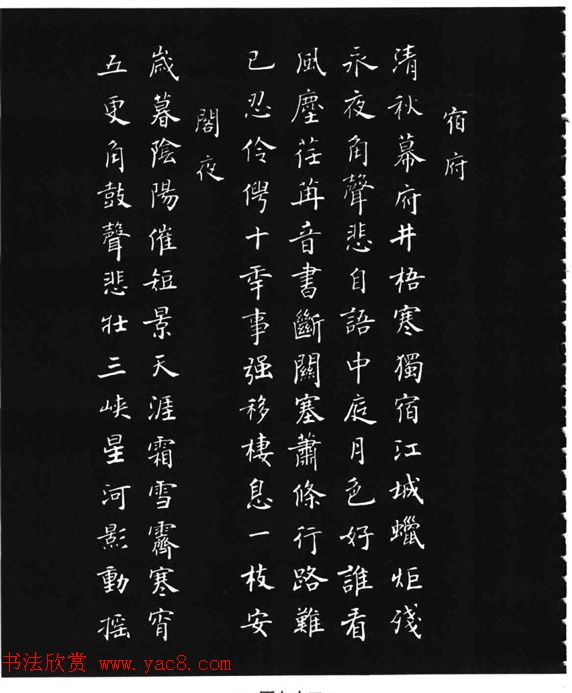 宿府
清秋幕府井梧寒獨宿江城蠟炬殘
永夜角聲悲自語中庭月色好誰看
風塵荏苒音書斷關塞蕭條行路難
已忍伶俜十年事强移棲息一枝安
閣夜
歲暮陰陽催短景天涯霜雪霽寒宵
五更角鼓聲悲壯三峽星河影動摇
书法欣赏 www.yac8.com